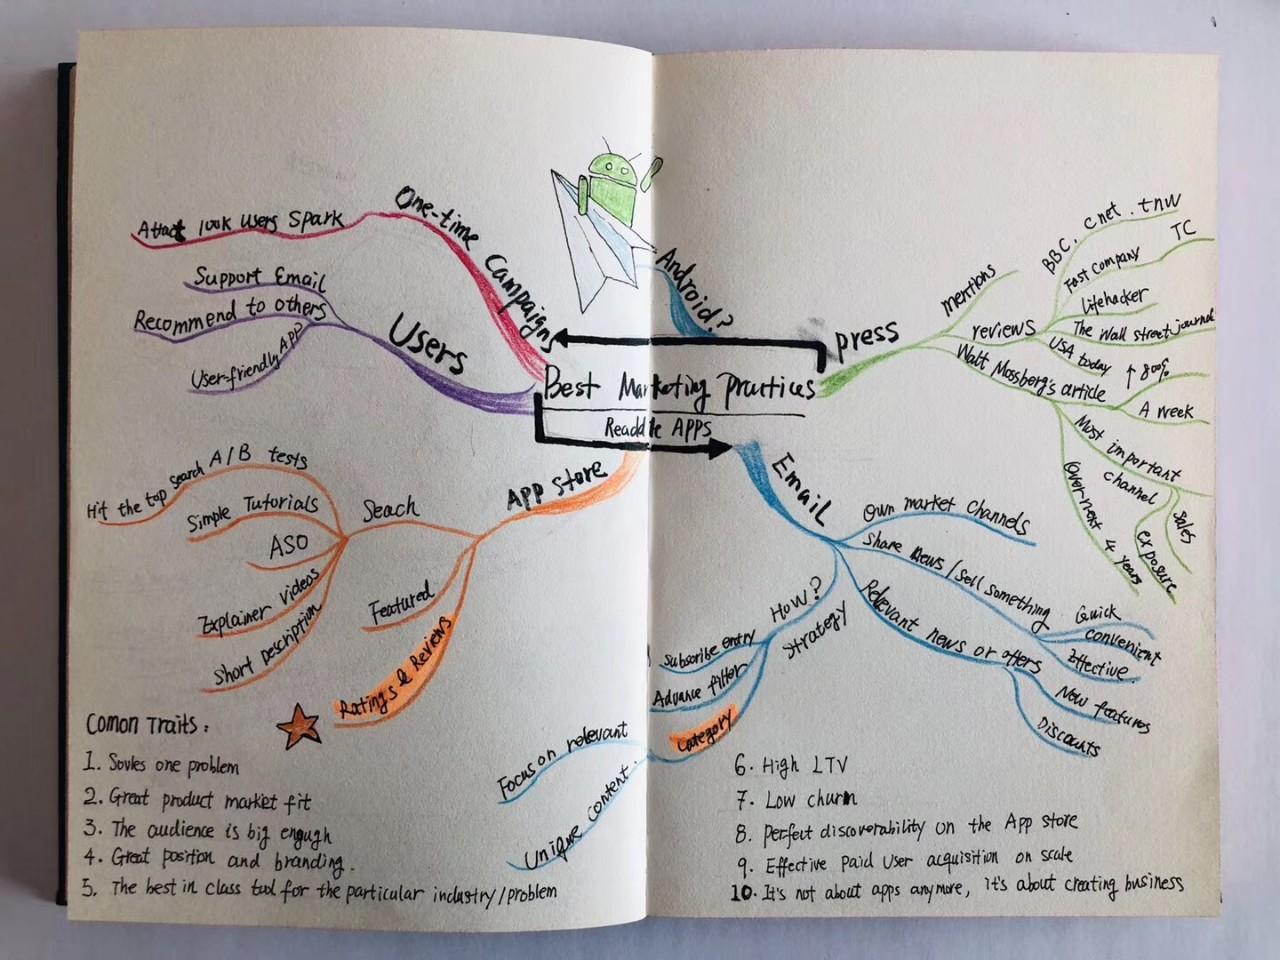 Best Marketing Practices
Readdle APPs
One-time Campaigns
Attact 100k users Spark
Users
Support Email
Recommend to others
User-friendly APP?
APP Store
Seach
A/B tests
Hit the top search
Simple Tutorials
ASO
Explainer videos
Short description
Featured
Ratings & Reviews
Android?
press
mentions
reviews
BBC, Cnet. tnw
TC
Fast Company
Lifehacker
The Wall street journal
USA today
Walt Mossberg's article
↑ 80%
A week
Most important
channel
sales
exposure
Over next 4 years
Email
Own market channels
Share News/sell something
Quick
convenient
Effective.
Relevant news or offers
New features
Discounts
How?
Strategy
Subscribe entry
Advance filter
Category
Focus on relevant
Unique content.
Comon Traits:
1. Sovles one problem
2. Great product market fit
3. The audience is big engugh
4. Great position and branding.
5. The best in class tool for the particular industry/problem
6. High LTV
7. Low churn
8. perfect discoverability on the App store
9. Effective paid User acquisition on scale
10. It's not about apps anymore, it's about creating business